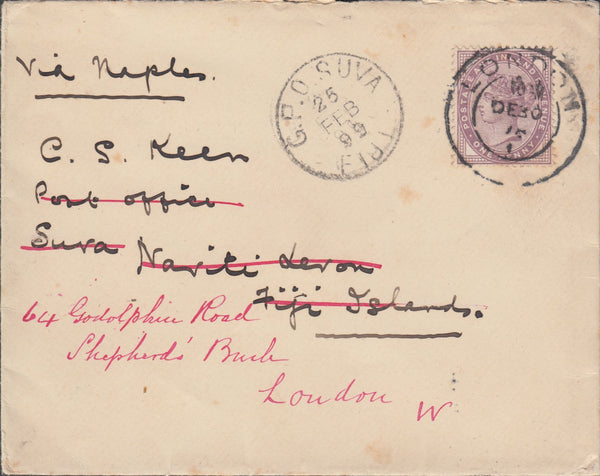 Via Naples.
G.P.O. SUVA
25
FEB
99
FIJI
POSTAGE AND INLAND REVENUE
ONE PENNY
LONDON
DE 30
C. S. Keen
Post office
Suva Naviti Levon
Fiji Islands.
64 Godolphin Road
Shepherd's Bush
London W